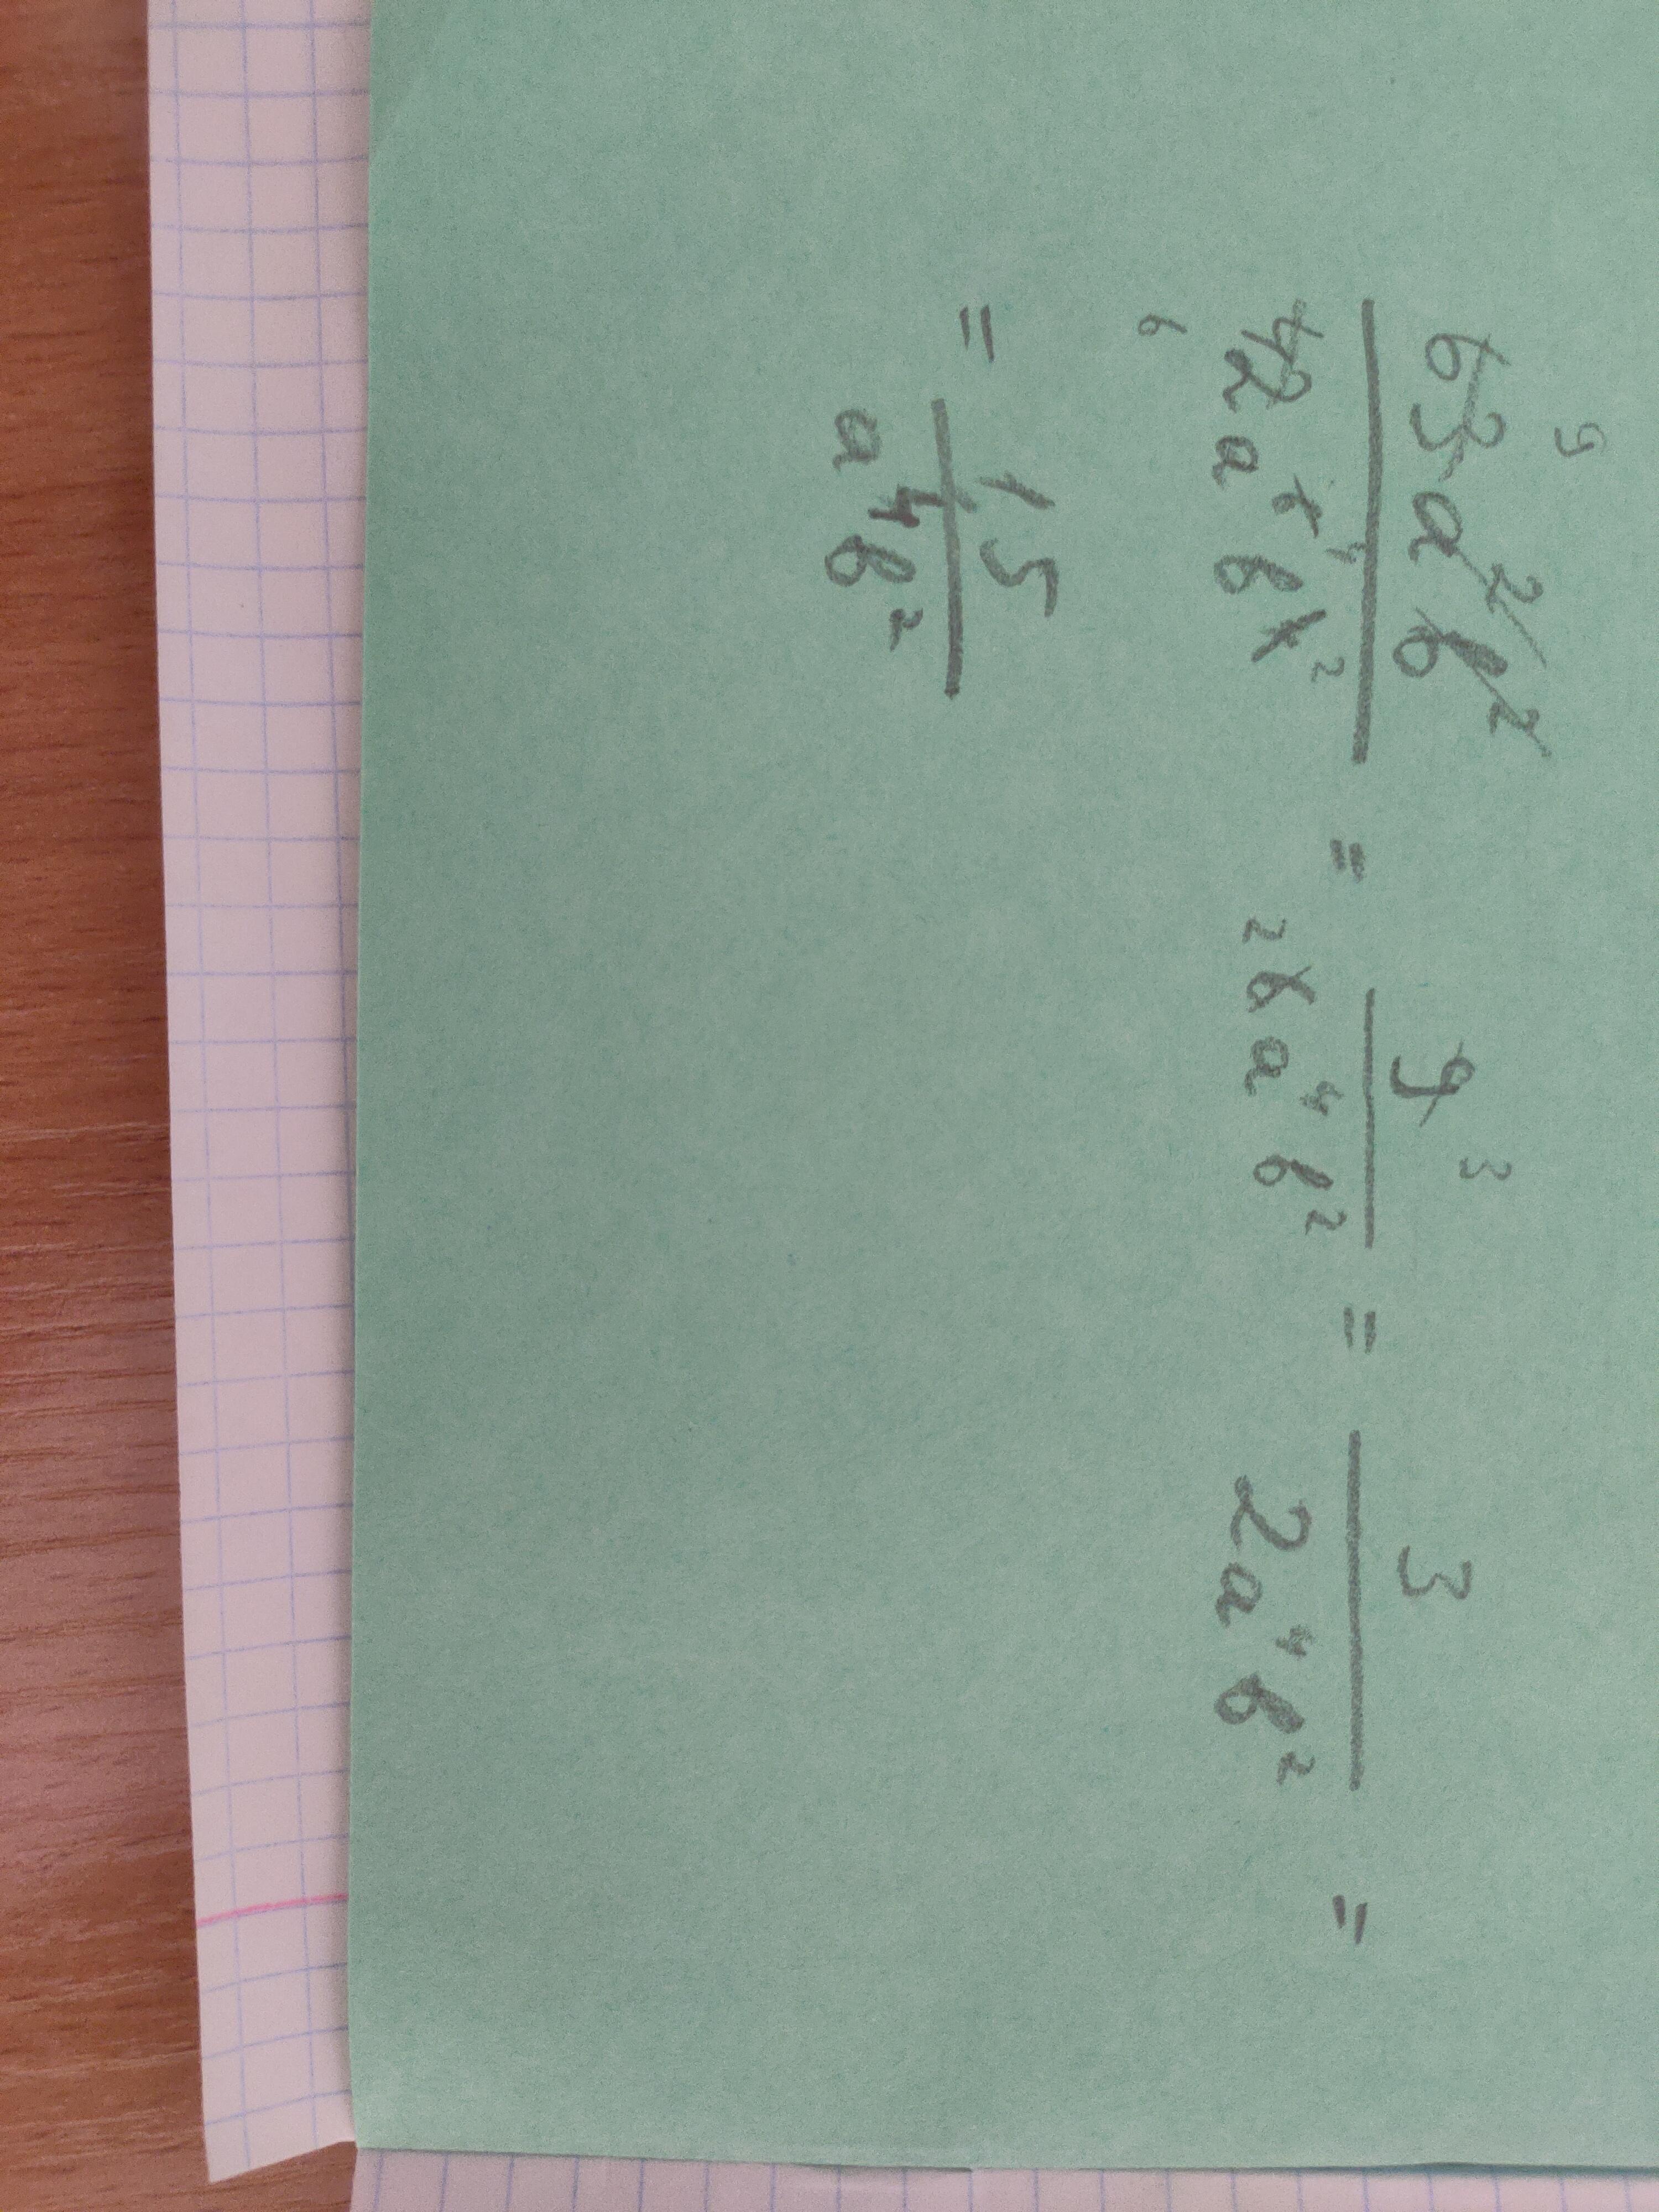 9
63a²b²
42a⁶ ⁴ b⁴ ² = 9 ³ / ₂ 6a⁴b² = 3 / 2a⁴b² =
6
= 1,5 / a⁴b²